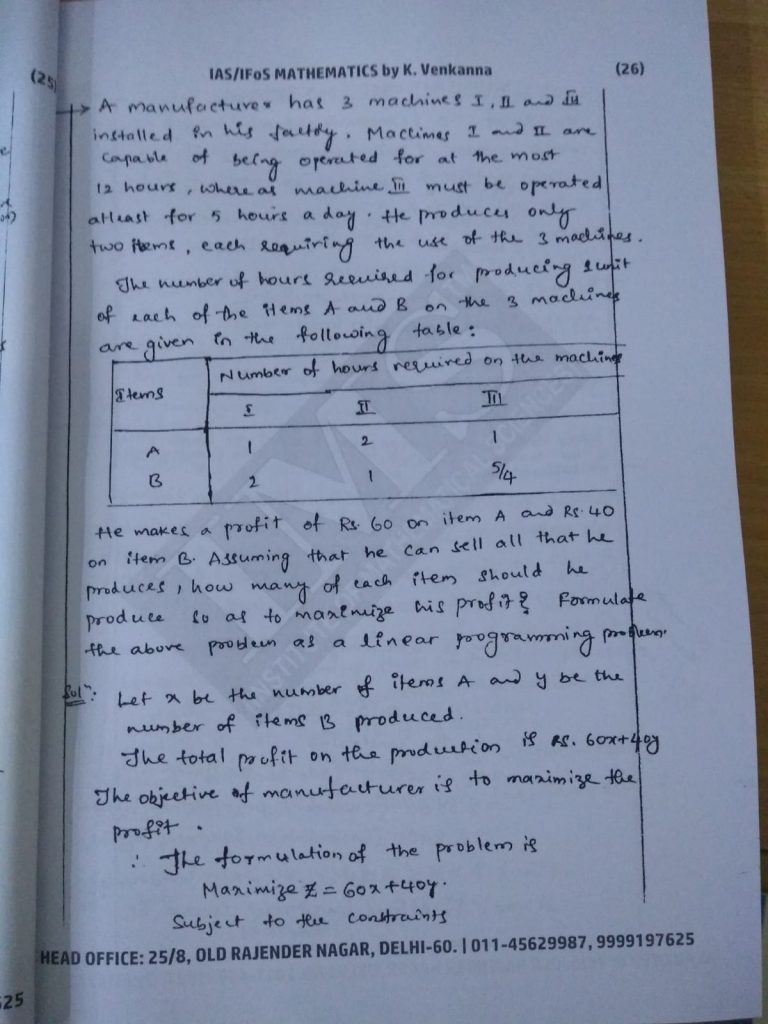 (25)
IAS/IFoS MATHEMATICS by K. Venkanna
(26)
A manufacturer has 3 machines I, II and III
installed in his factory. Machines I and II are
capable of being operated for at the most
12 hours, where as machine III must be operated
atleast for 5 hours a day. He produces only
two items, each requiring the use of the 3 machines.
The number of hours required for producing 1 unit
of each of the items A and B on the 3 machines
are given in the following table:
Items
Number of hours required on the machines
I II III
A 1 2 1
B 2 1 5/4
He makes a profit of Rs. 60 on item A and Rs. 40
on item B. Assuming that he can sell all that he
produces, how many of each item should he
produce so as to maximize his profit? Formulate
the above problem as a linear programming problem.
Solⁿ: Let x be the number of items A and y be the
number of items B produced.
The total profit on the production is Rs. 60x+40y
The objective of manufacturer is to maximize the
profit.
∴ The formulation of the problem is
Maximize Z = 60x+40y.
Subject to the constraints
HEAD OFFICE: 25/8, OLD RAJENDER NAGAR, DELHI-60. | 011-45629987, 9999197625
625